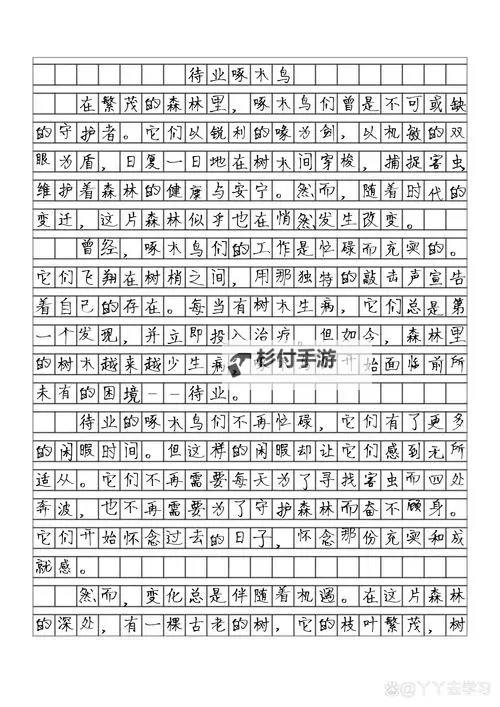 待业啄木鸟
在繁茂的森林里，啄木鸟们曾是不可或缺
的守护者。它们以锐利的喙为剑，以机敏的双
眼为盾，日复一日地在树木间穿梭，捕捉害虫
维护着森林的健康与安宁。然而，随着时代的
变迁，这片森林似乎也在悄然发生改变。
曾经，啄木鸟们的工作是忙碌而充实的。
它们飞翔在树梢之间，用那独特的敲击声宣告
着自己的存在。每当有树木生病，它们总是第
一个发现，并立即投入治疗。但如今，森林里
的树木越来越少生病，
杉付手游
开始面临前所
未有的困境--待业。
待业的啄木鸟们不再忙碌，它们有了更多
的闲暇时间。但这样的闲暇却让它们感到无所
适从。它们不再需要每天为了寻找害虫而四处
奔波，也不再需要为了守护森林而奋不顾身。
它们开始怀念过去的日子，怀念那份充实和成
就感。
然而，变化总是伴随着机遇。在这片森林
的深处，有一棵古老的树，它的枝叶繁茂，树
@丫丫会学习